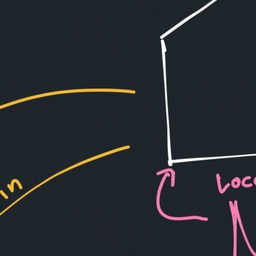 in
Loc